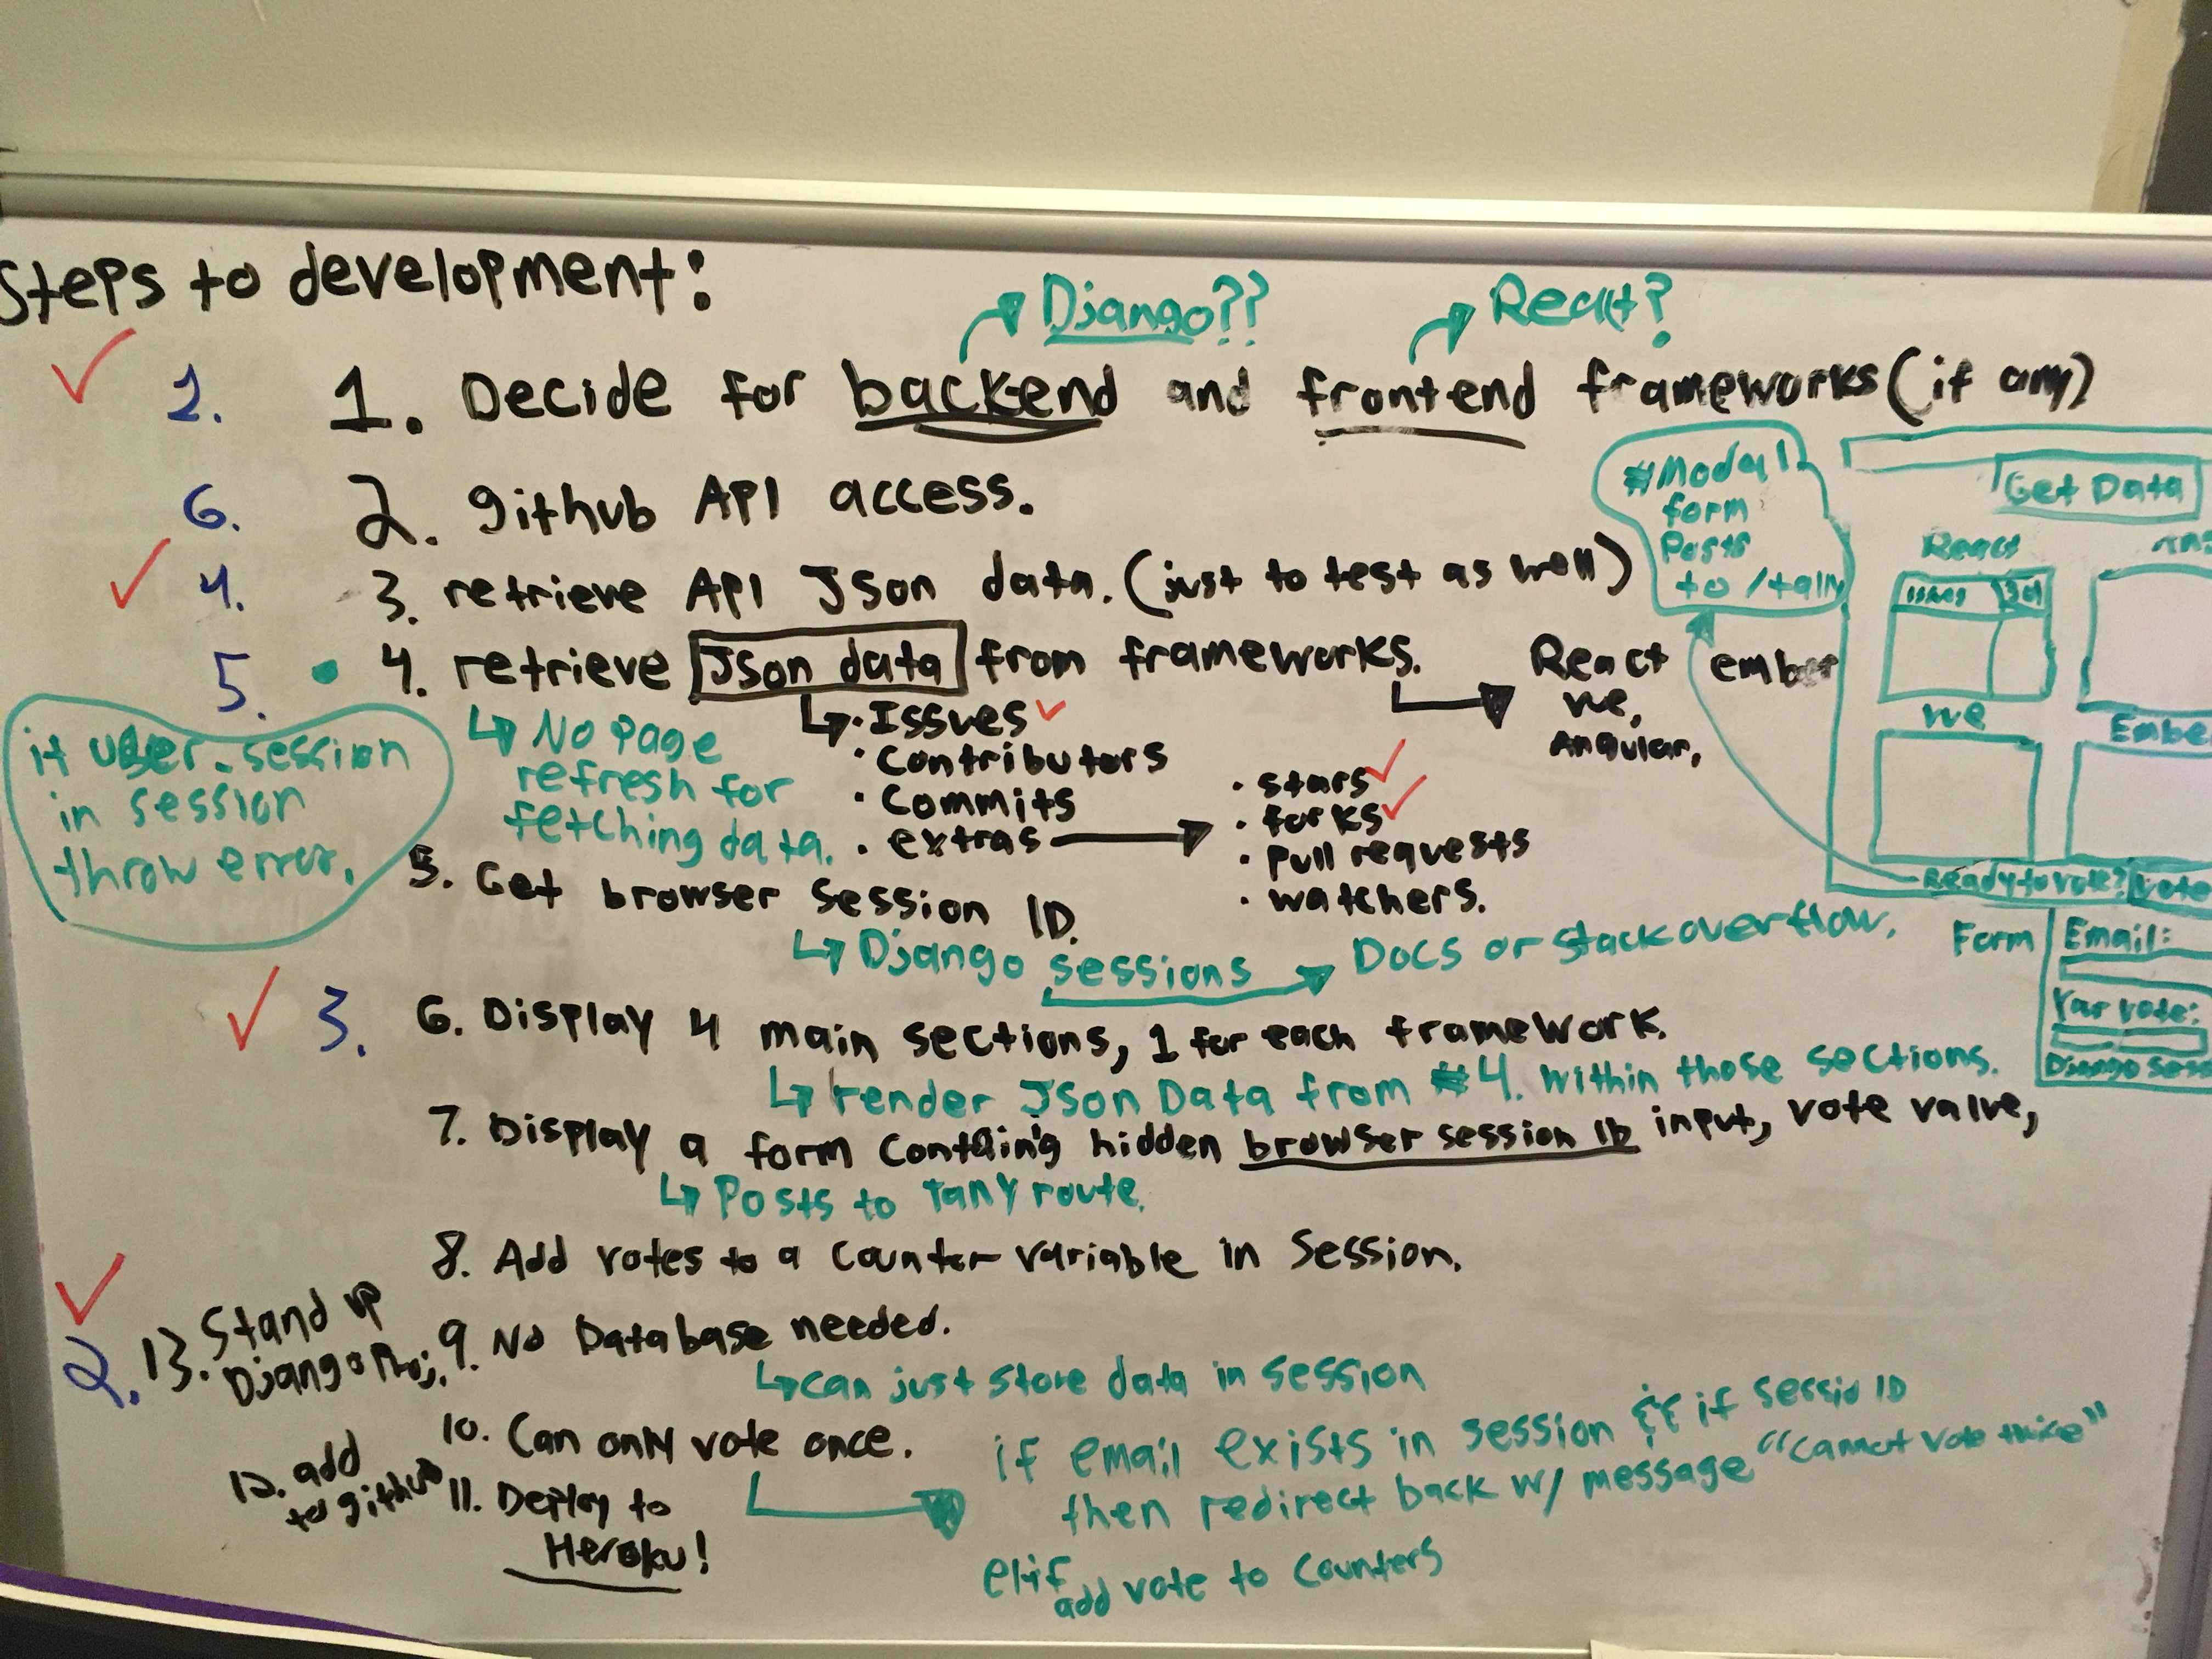 Steps to development:
Django??
React?
2. 1. Decide for backend and frontend frameworks (if any)
6. 2. github API access.
4. 3. retrieve API Json data. (just to test as well)
5. 4. retrieve Json data from frameworks.
React
Vue,
Angular,
ember
No page
refresh for
fetching data.
· Issues
· Contributors
· Commits
· extras
· stars
· forks
· pull requests
· watchers.
if user_session
in session
throw error.
5. Get browser session ID.
Django sessions
Docs or stackoverflow.
3. 6. Display 4 main sections, 1 for each framework.
render Json Data from #4. within those sections.
7. Display a form containing hidden browser session ID input, vote value,
Posts to tally route.
8. Add votes to a counter variable in session.
2. 13. Stand up
Django Proj.
9. No Database needed.
can just store data in session
10. Can only vote once.
if email exists in session && if sessio ID
then redirect back w/ message "cannot vote twice"
elif
add vote to counters
12. add
to github
11. Deploy to
Heroku!
#Modal
form
Posts
to /tally
Get Data
React
Issues
Vue
Embe
Ready to vote? Vote
Form
Email:
Your vote:
Django sess